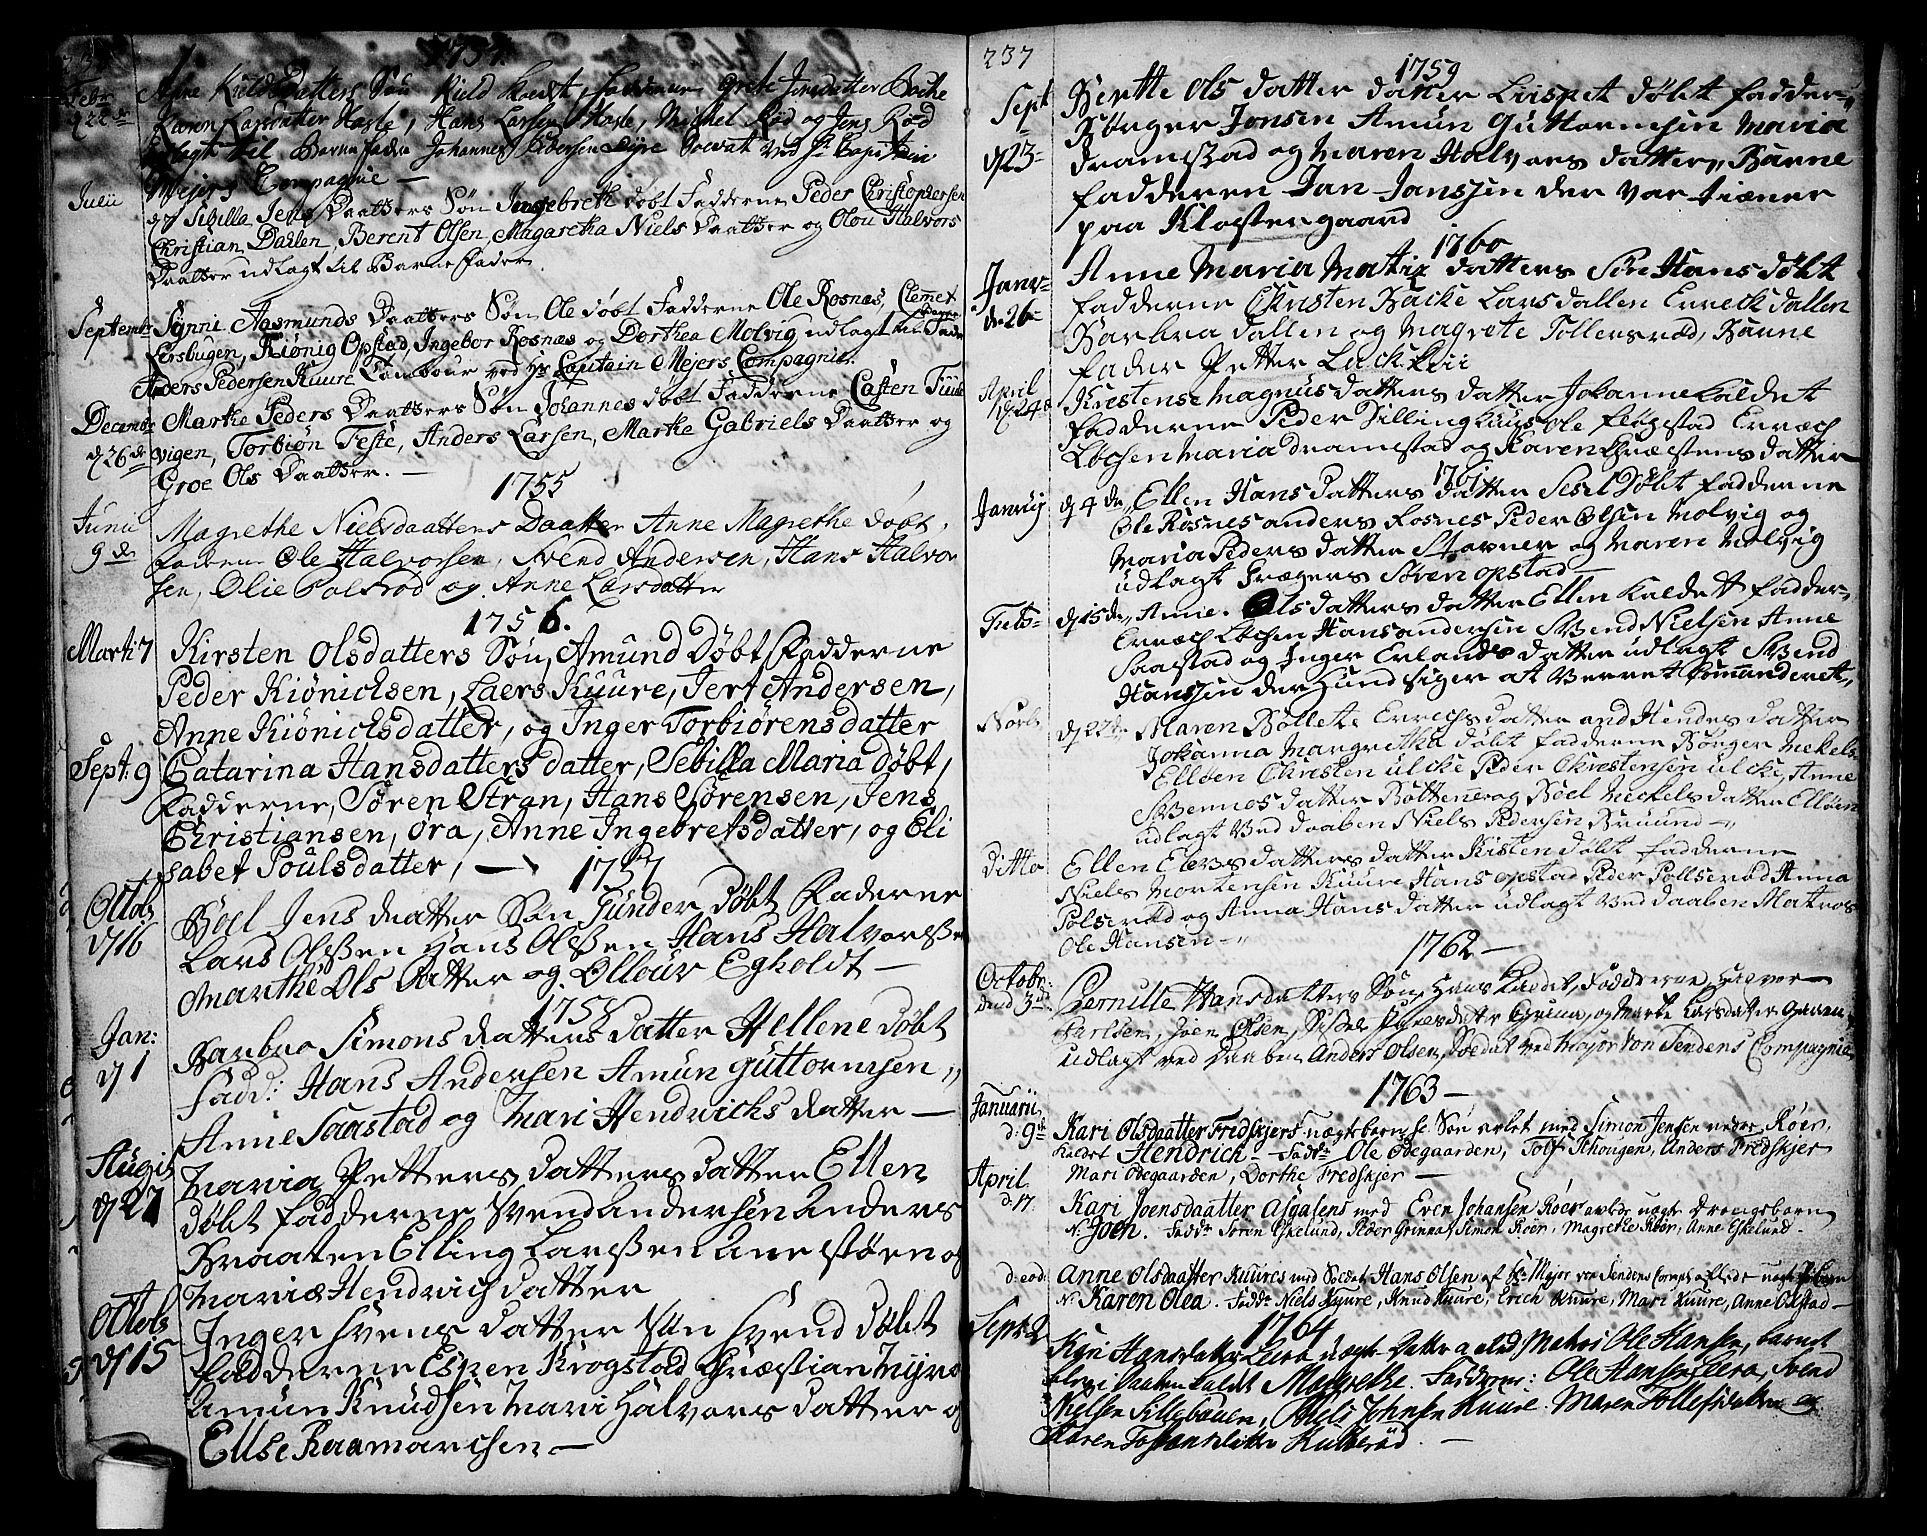 1754.
Febr
d 22de
Anne Kieldsdatters Søn Kield døbt, fadderne Grete Jonsdatter Bache
Karen Larsdatter Hasle, Hans Larsen Hasle, Michel Rød og Jens Rød
udlagt til Barne fader Johannes Pedersen Soldat ved Hr Capitain
Mejers Compagnie —
Julii
d 7 Sibilla Jens Daatters Søn Ingebreth døbt Fadderne Peder Christophersen
Christian Dahlen, Berent Olsen, Magaretha Niels Daatter og Olou Halvors
Daatter udlagt til Barne Fader
Septembr Synni Aasmunds Daatters Søn Ole døbt Fadderne Ole Rosnæs, Clemet
Lersbugen, Kiönig Opstad, Ingebor Rosnæs og Dorthea Molvig udlagt til Fader
Anders Pedersen Kuure Tambour ved Hr Capitain Mejers Compagnie.
Decembr Marthe Peders Daatters Søn Johannes døbt Fadderne Casten
d 26de vigen, Torbiøn Teste, Anders Larsen, Marthe Gabriels Daatter og
Groe Ols Daatter. —
1755
Junii Magrethe Nielsdaatters Daatter Anne Magrethe døbt,
9de fadderne Ole Halvorsen, Svend Andersen, Hans Halvor
sen, Olie Polsrød og Anne Larsdatter
1756.
Marti 7 Kirsten Olsdatters Søn, Amund Døbt, Fadderne
Peder Kiönichsen, Laers Kuure, Jert Andersen,
Anne Kiönichsdatter, og Inger Torbiörensdatter
Sept: 9 Catarina Hansdatters datter, Sebilla Maria døbt,
Fadderne, Sören Stran, Hans Sörensen, Jens
Christiansen, öra, Anne Ingebretsdatter, og Eli
sabet Poulsdatter, —
1757
Octob Boel Jens datter Søn Gunder Døbt Faderne
d 16 Lars Olssen Hans Olssen Hans Halvorssen
Marthe Ols Datter og Ollour Egholdt —
1758
Jan: Barbro Simons datters datter Hellene døbt
d 1 Fadd: Hans Andersen Amun Guttormsen,,
Anne Saastad og Mari Hendrichs datter —
Augis Maria Petters datters datter Ellen
d 27 døbt fadderne Svend Andersen Anders
Braaten Elling Larssen Ane støen og
Maria Hendrichdatter
Octob Inger Svens datter Søn Svend døbt
d 15 fadderne Espen Krogstad Chræstian
Amun Knudsen Mari Halvors datter og
Ellse Raamarchen —
237
1759
Sept Berthe Ols datter datter Lispet døbt fadder,,
d 23 Børger Jonsen Amun Guttormsen Maria
Dramstad og Maren Halvors datter,, Barne
fadderen Jan Janssen der var tiæner
paa Klostergaard
1760
Janv Anne Maria Matix datters Søn Hans døbt
d. 26 fadderne Christen Backe Lars dallen Errech dallen
Barbra dallen og Magrete Tollersrød, Barne
fader Petter Lack
April Kirstense Magnus datters datter Johanne kaldet
d 24 fadderne Peder Dilling Ole fløgstad Errech
Löchsen Maria dramstad og Karen Chræstens datter
1761
Janvij d 4 de,, Ellen Hans datters datter Sesel Døbt fadderne
Ole Rosnes anders Rosnes Peder Olsen Molvig og
Maria Peders datter Stovner og Maren Molvig
udlagt Søren opstad —
Feb d 15 de,, Anne Olsdatters datter Ellen kaldet fadder,,
Errech Löchsen Hans andersen Svend Nielsen Anne
Saastad og Inger Erlands datter udlagt Svend
Hanssen der hund siger at Verret Commanderet,,
Novb d 22 de Maren Bollete Errechs datter and Hendes datter
Johanna Margretha døbt fadderne Børger Mekels
Elløen Christen ulcke Peder Christensen ulcke, Anne
Svennes datter Bottene og Boel Mekels datter Elløen
udlagt Ved daaben Niels Pedersen Bruund —,,
Ditto Ellen Elevs datters datter Kisten døbt fadderne
Niels Mortensen Kuure Hans opstad Peder Pollserød Anna
Polserød og Anna Hans datter udlagt Ved daaben Matros
Ole Hansen —,,
1762 —
Octobr: Pernille Hansdatters Søn Hans kaldet, Fadderne, Halvor
dend 3die Karlsen, Joen Olsen, Sissel datter Grina, og Marthe Larsdatter Gaaren,
udlagt ved Daaben Anders Olsen, Soldat ved Major von Tendens Compagnie
1763 —
Januarii
d: 9de Kari Olsdaatter Fredskjers uægte barn Søn avlet med Simon Jensen nedre Röer,
kaldet Hendrich. Faddr Ole Ödegaarden, Tolf Schougen, Anders Fredskjer
Mari Ödegaarden, Dorthe Fredskjer —
April
d: 17. Kari Joensdaatter Asgalens med Even Johansen Röer avlede uægte Drengebarn
N. Joen. Faddr Søren Eskelund, Peder Grinna, Simon Röer, Magrethe Röer, Anne Eskelund.
d: eod: Anne Olsdaatter Kuures med Soldat Hans Olsen af Hr Major von Tendens Comp: avlede uægte
N. Karen Olea. Faddr Niels Kuure, Knud Kuure, Erich Kuure, Mari Kuure, Anne Oxstad —
1764
Sept: 2 Kari Hansdatter Leira uægte Datter avled med Matros Ole Hansen, barnet
blev i daaben kaldet Magrethe. Fadderne: Ole Hansen Leera, Svend
Nielsen Sillebauen, Niels Johnsen Kuure. Maren Tollefsdatter og
Karen Johansdatter Kulberöd. —